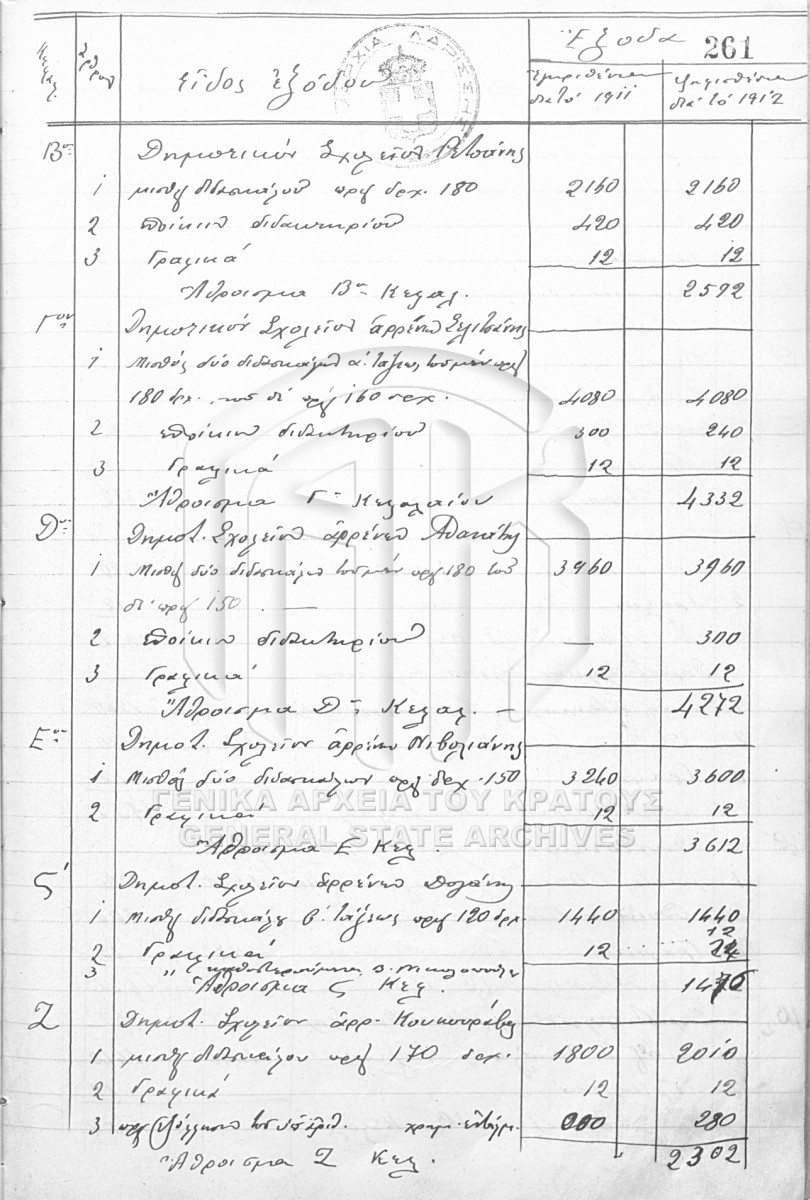 Ἔξοδα 261
Κεφάλ. Ἄρθρον Εἶδος ἐξόδου Ἐγκριθέντα διὰ τὸ 1911 Ψηφισθέντα διὰ τὸ 1912
ΑΡΧΙΑ ΛΑΡΙΣΣΗΣ
Βον Δημοτικὸν Σχολεῖον Ρετσάνης
1 μισθὸς διδασκάλου πρὸς δρχ. 180 2160 2160
2 ἐνοίκιον διδακτηρίου 420 420
3 Γραφικά 12 12
Ἄθροισμα Βου Κεφαλ. 2592
Γον Δημοτικὸν Σχολεῖον ἀρρένων Σελιτσάνης
1 Μισθὸς δύο διδασκάλων α' τάξεως τοῦ μὲν πρὸς
180 δρχ., τοῦ δὲ πρὸς 160 δρχ. 4080 4080
2 ἐνοίκιον διδακτηρίου 300 240
3 Γραφικά 12 12
Ἄθροισμα Γου Κεφαλαίου 4332
Δον Δημοτ. Σχολεῖον ἀρρένων Ἀθανάτης
1 Μισθὸς δύο διδασκάλων τοῦ μὲν πρὸς 180 τοῦ 3960 3960
δὲ πρὸς 150. —
2 ἐνοίκιον διδακτηρίου — 300
3 Γραφικά 12 12
Ἄθροισμα Δου Κεφαλ. — 4272
Εον Δημοτ. Σχολεῖον ἀρρένων Νιβολιάνης
1 Μισθὸς δύο διδασκάλων πρὸς δρχ. 150 3240 3600
2 Γραφικαί 12 12
ΓΕΝΙΚΑ ΑΡΧΕΙΑ ΤΟΥ ΚΡΑΤΟΥΣ
GENERAL STATE ARCHIVES
Ἄθροισμα Ε Κεφ. 3612
Ϛ' Δημοτ. Σχολεῖον ἀρρένων
1 Μισθὸς διδασκάλου β' τάξεως πρὸς 120 δρχ. 1440 1440
2 Γραφικαί 12 12
3 " καθυστερούμενα 24
Ἄθροισμα Ϛ Κεφ. 1476
Ζ Δημοτ. Σχολεῖον ἀρρ. Κουκουράβας
1 μισθὸς διδασκάλου πρὸς 170 δρχ. 1800 2010
2 Γραφικά 12 12
3 πρὸς ἐξόφλησιν τοῦ ὑπ' ἀριθ. χρημ. ἐντάλμ. 000 280
Ἄθροισμα Ζ Κεφ. 2302